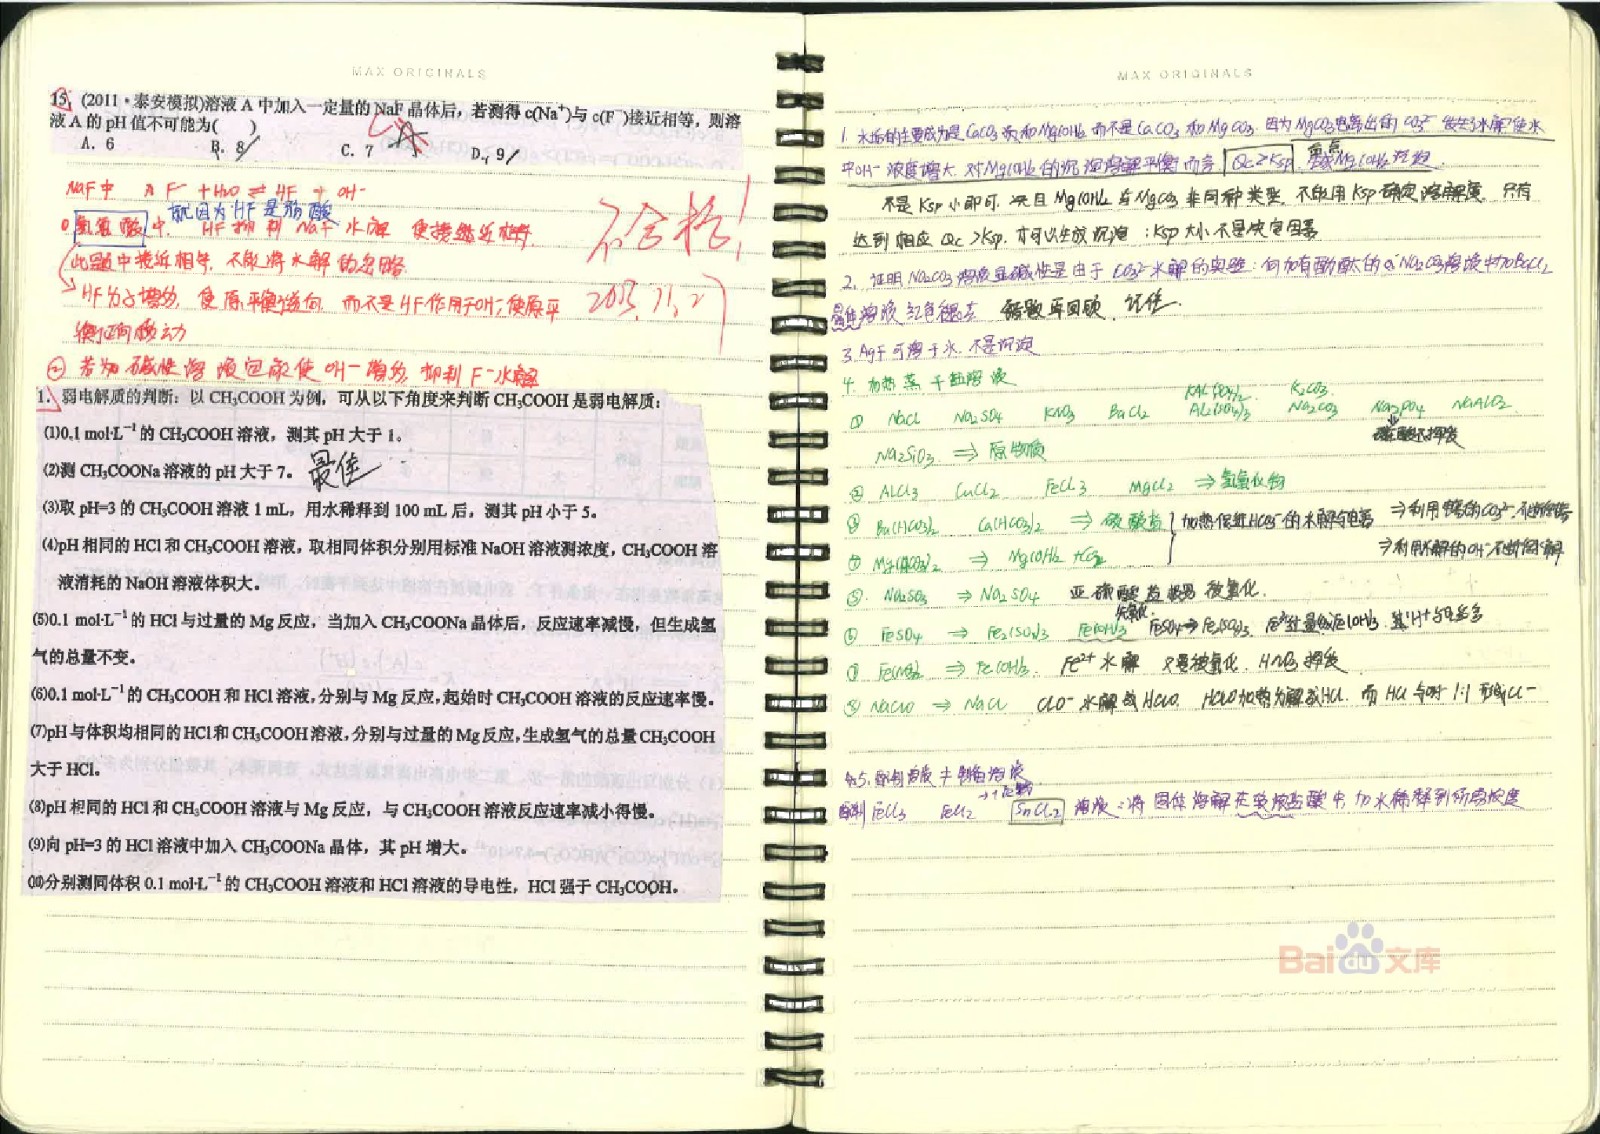 MAX ORIGINALS
15. (2011·泰安模拟)溶液 A 中加入一定量的 NaF 晶体后，若测得 c(Na⁺)与 c(F⁻)接近相等，则溶
液 A 的 pH 值不可能为(    )
A. 6    B. 8    C. 7    D. 9
NaF中 F⁻ + H₂O ⇌ HF + OH⁻
就因为HF是弱酸
①氢氟酸中. HF抑制NaF水解 使接近相等.
不合格！
此题中接近相等, 不能将水解的忽略.
HF分子增多, 使原平衡逆向 而不是HF作用于OH⁻使原平
衡正向移动
②若为碱性溶液也能使OH⁻增多, 抑制F⁻水解
1. 弱电解质的判断：以 CH₃COOH 为例，可从以下角度来判断 CH₃COOH 是弱电解质：
(1)0.1 mol·L⁻¹ 的 CH₃COOH 溶液，测其 pH 大于 1。
(2)测 CH₃COONa 溶液的 pH 大于 7。 最佳
(3)取 pH=3 的 CH₃COOH 溶液 1 mL，用水稀释到 100 mL 后，测其 pH 小于 5。
(4)pH 相同的 HCl 和 CH₃COOH 溶液，取相同体积分别用标准 NaOH 溶液测浓度，CH₃COOH 溶
液消耗的 NaOH 溶液体积大。
(5)0.1 mol·L⁻¹ 的 HCl 与过量的 Mg 反应，当加入 CH₃COONa 晶体后，反应速率减慢，但生成氢
气的总量不变。
(6)0.1 mol·L⁻¹ 的 CH₃COOH 和 HCl 溶液，分别与 Mg 反应，起始时 CH₃COOH 溶液的反应速率慢。
(7)pH 与体积均相同的 HCl 和 CH₃COOH 溶液，分别与过量的 Mg 反应，生成氢气的总量 CH₃COOH
大于 HCl。
(8)pH 相同的 HCl 和 CH₃COOH 溶液与 Mg 反应，与 CH₃COOH 溶液反应速率减小得慢。
(9)向 pH=3 的 HCl 溶液中加入 CH₃COONa 晶体，其 pH 增大。
(10)分别测同体积 0.1 mol·L⁻¹ 的 CH₃COOH 溶液和 HCl 溶液的导电性，HCl 强于 CH₃COOH。
MAX ORIGINALS
1. 水垢的主要成分是CaCO₃ 和Mg(OH)₂ 而不是CaCO₃ 和MgCO₃. 因为MgCO₃电离出的CO₃²⁻发生了水解使水
中OH⁻浓度增大 对Mg(OH)₂的沉淀溶解平衡而言 Qc>Ksp 重点 生成Mg(OH)₂沉淀
不是Ksp小即可. 况且Mg(OH)₂与MgCO₃非同种类型, 不能用Ksp确定溶解度. 只有
达到相应Qc>Ksp. 才可以生成沉淀 ∴Ksp大小不是决定因素
2. 证明Na₂CO₃溶液显碱性是由于CO₃²⁻水解的实验: 向加有酚酞的Na₂CO₃溶液中加BaCl₂
溶液 红色褪去 错题再回顾. 记住.
3. AgF可溶于水. 不是沉淀
4. 加热蒸干盐溶液
KAl(SO₄)₂ K₂CO₃
① NaCl Na₂SO₄ KNO₃ BaCl₂ Al₂(SO₄)₃ Na₂CO₃ Na₃PO₄ NaAlO₂
磷酸不挥发
Na₂SiO₃ ⇒ 原物质
② AlCl₃ CuCl₂ FeCl₃ MgCl₂ ⇒ 氢氧化物
③ Ba(HCO₃)₂ Ca(HCO₃)₂ ⇒ 碳酸盐 加热促进HCO₃⁻的水解与电离 ⇒利用电离的CO₃²⁻
④ Mg(HCO₃)₂ ⇒ Mg(OH)₂ +CO₂ ⇒利用水解的OH⁻
⑤ Na₂SO₃ ⇒ Na₂SO₄ 亚硫酸盐易被氧化.
⑥ FeSO₄ ⇒ Fe₂(SO₄)₃ Fe(OH)₃ FeSO₄→Fe₂(SO₄)₃
⑦ Fe(NO₃)₂ ⇒ Fe(OH)₃. Fe²⁺水解 又易被氧化. HNO₃挥发
⑧ NaClO ⇒ NaCl ClO⁻水解成HClO. HClO加热分解成HCl. 而HCl 1:1 形成Cl⁻
5. 配制溶液
配制 FeCl₃ FeCl₂ SnCl₂ 溶液: 将固体溶解在较浓盐酸中, 加水稀释到所需浓度
Baidu文库